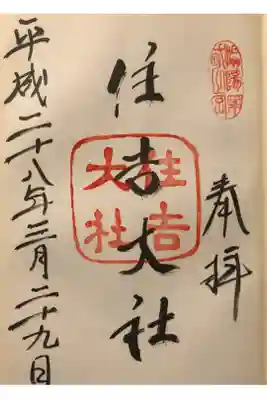 奉拝
住吉大社
住吉大社
平成二十八年三月二十九日